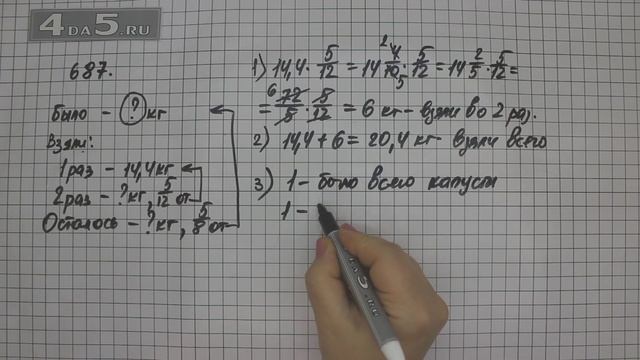 4DA5.RU
687.
было - ? кг
Взяли:
1 раз - 14,4 кг
2 раз - ? кг, 5/12 от
Осталось - ? кг, 5/8 от
1) 14,4 · 5/12 = 14 4/10 · 5/12 = 14 2/5 · 5/12 =
= 72/5 · 5/12 = 6 кг - взяли во 2 раз.
2) 14,4 + 6 = 20,4 кг - взяли всего
3) 1 - было всего капусты
1 -
4DA5.RU